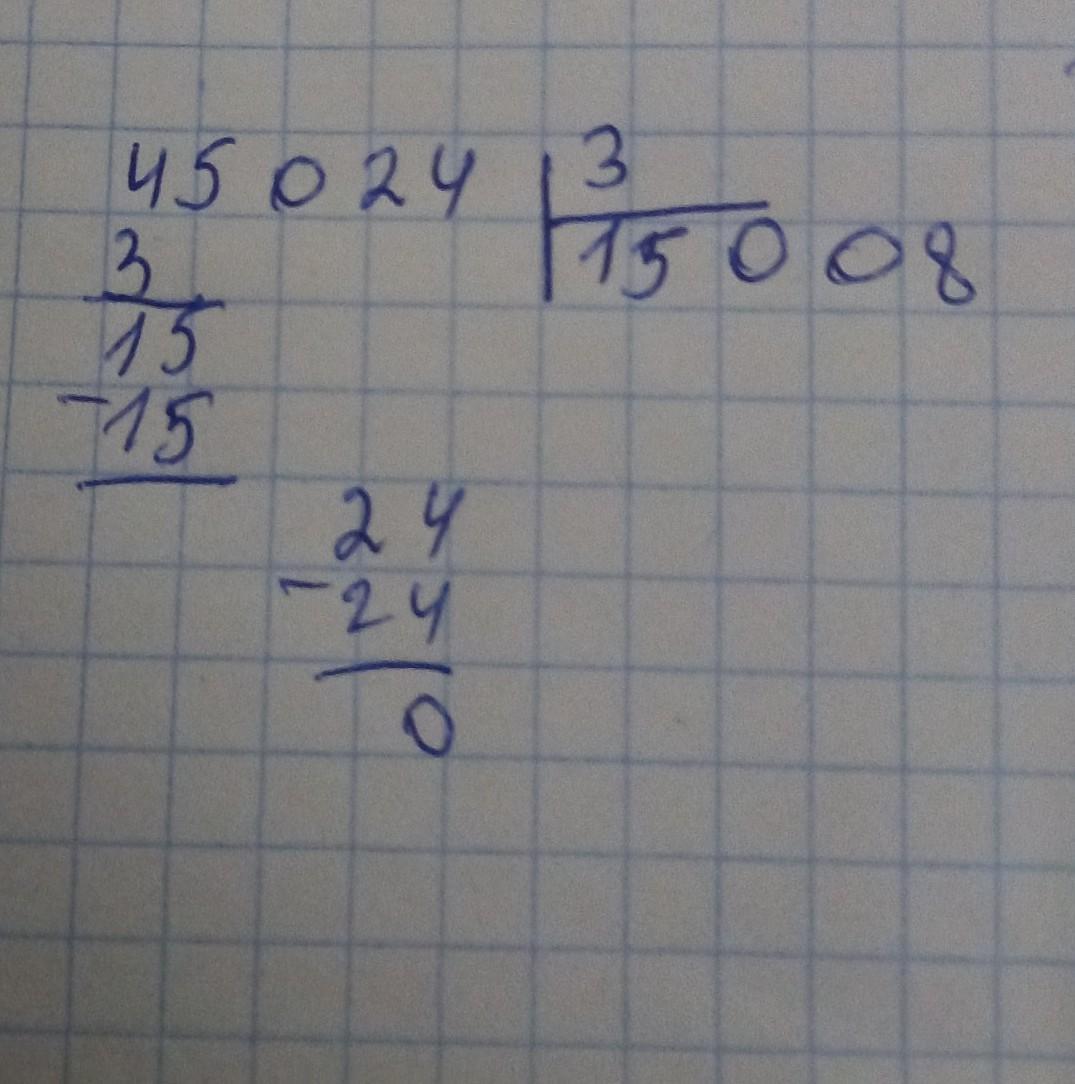 45024 3
3 15008
15
-15
24
-24
0